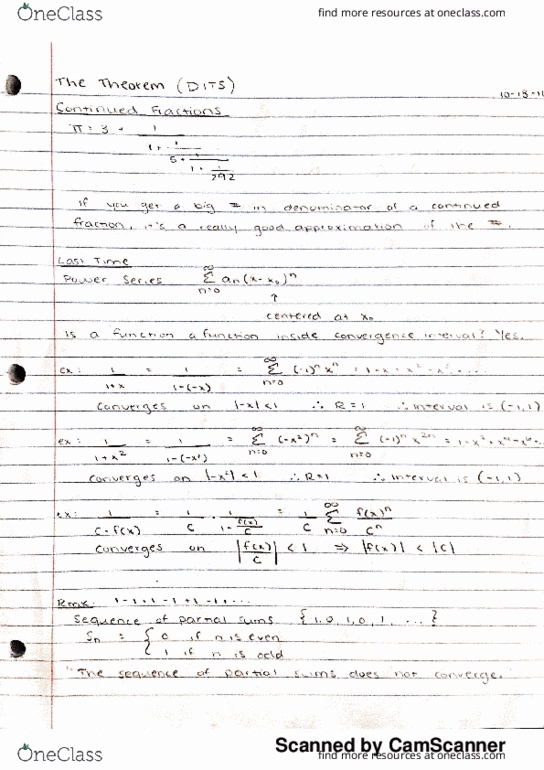 OneClass
find more resources at oneclass.com
The Theorem (DITS)
10-18-
Continued Fractions
π = 3 + 1
1 + 1
5 + 1
1 + 1
292
If you get a big # in denominator of a continued
fraction, it's a really good approximation of the #.
Last Time
Power Series ∞ Σ n=0 an(x-x₀)ⁿ
↑
centered at x₀
Is a function a function inside convergence interval? Yes.
ex: 1/(1+x) = 1/(1-(-x)) = ∞ Σ n=0 (-1)ⁿxⁿ = 1-x+x²-x³...
converges on |-x|<1 ∴ R=1 ∴ interval is (-1,1)
ex: 1/(1+x²) = 1/(1-(-x²)) = ∞ Σ n=0 (-x²)ⁿ = ∞ Σ n=0 (-1)ⁿ x²ⁿ = 1-x²+x⁴-x⁶+..
converges on |-x²|<1 ∴ R=1 ∴ interval is (-1,1)
ex: 1/(c-f(x)) = 1/c · 1/(1-f(x)/c) = 1/c ∞ Σ n=0 f(x)ⁿ/cⁿ
converges on |f(x)/c| < 1 ⇒ |f(x)| < |c|
Rmk 1-1+1-1+1-1+...
Sequence of partial sums {1,0,1,0,1,...}
Sn = { 0 if n is even
1 if n is odd
"The sequence of partial sums does not converge."
Scanned by CamScanner
OneClass
find more resources at oneclass.com